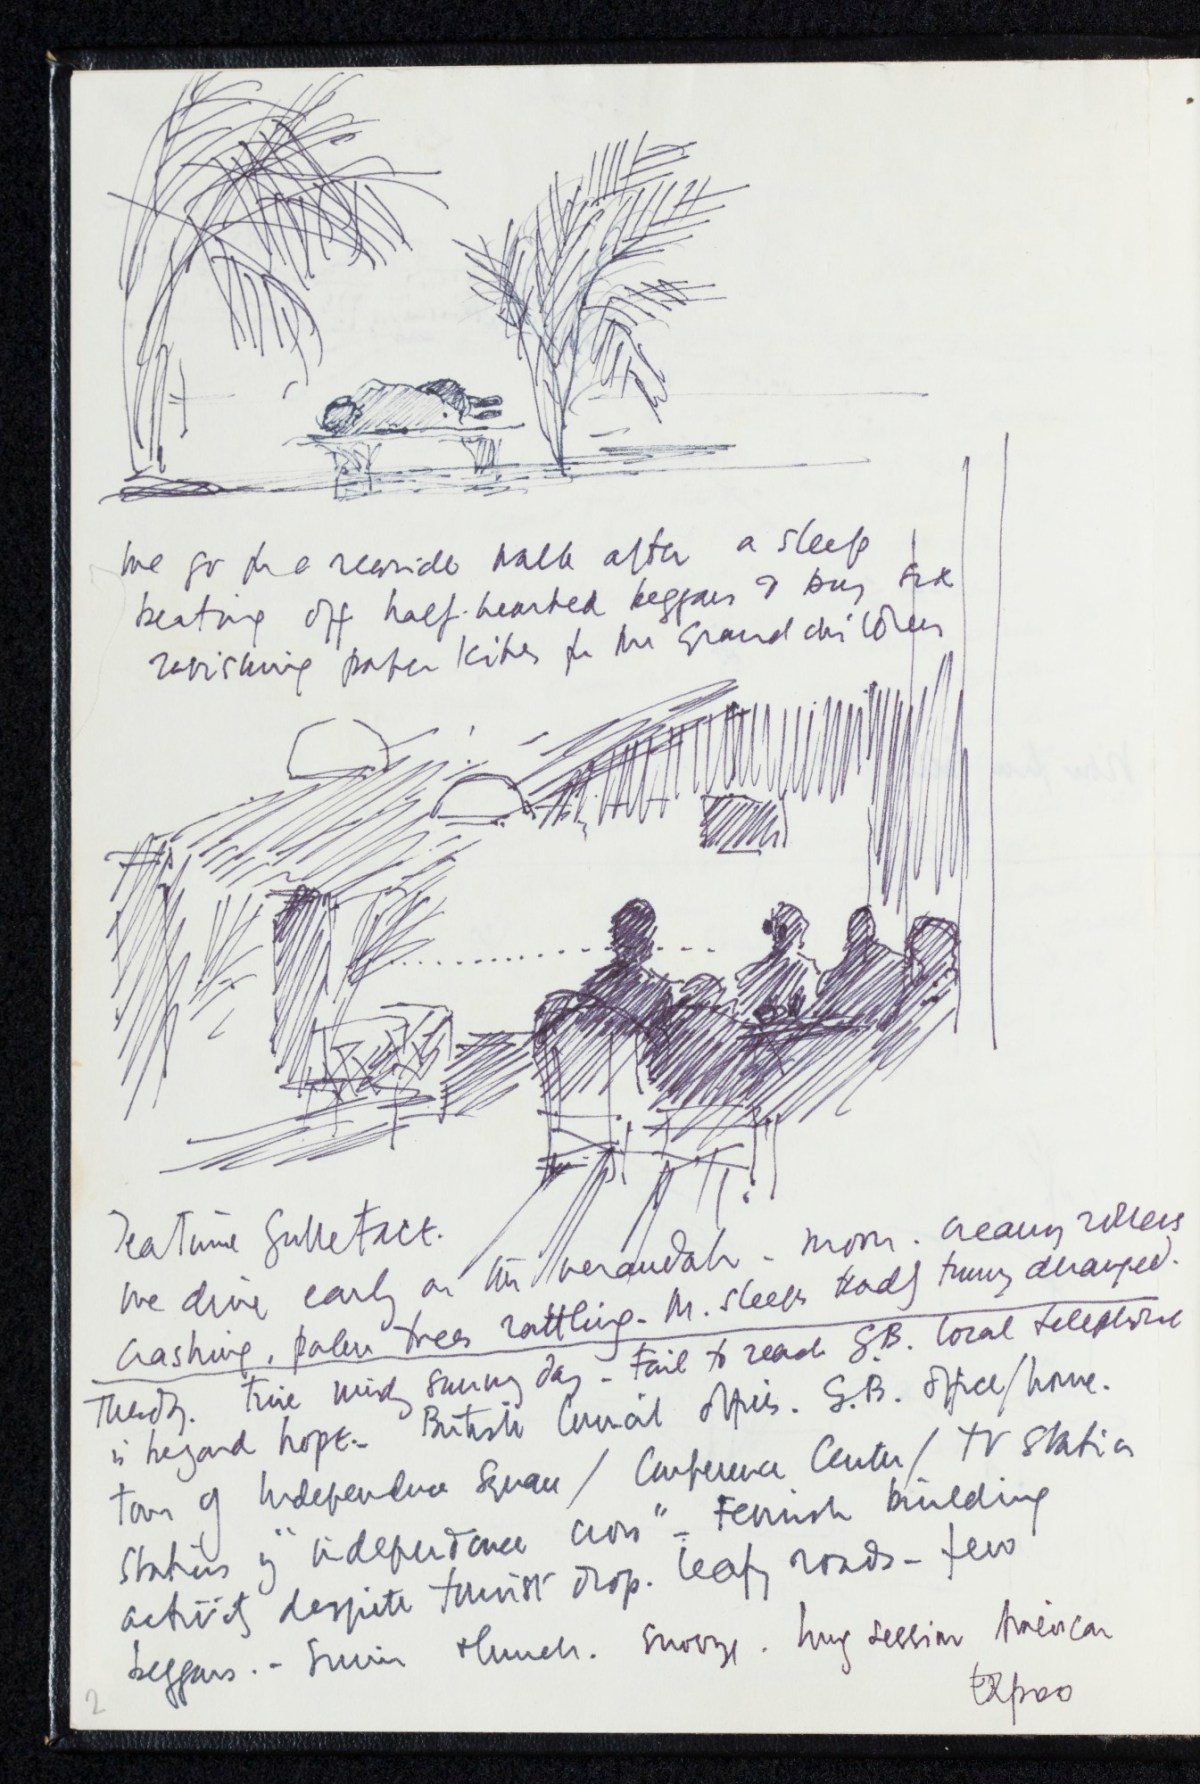 we go for a seaside walk after a sleep
beating off half-hearted beggars & buy six
ravishing paper kites for the grandchildren
Teatime Galle Face.
we dine early on the verandah - moon. creamy rollers
crashing, palm trees rattling - M. sleeps badly tummy deranged.
Tuesday. Fine windy sunny day - Fail to reach G.B. local telephone
is beyond hope - British Council offices. G.B. office/home.
tour of Independence Square / Conference Center / TV Station
of "independence " - Feverish building
activity despite tourist drop. leafy roads - few
beggars. - Swim & lunch. snooze. long session American
expo
2